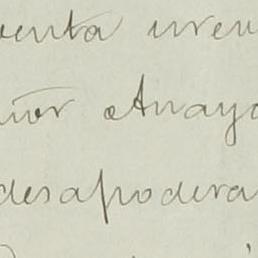 venta irrev
ñor Anaya
desapodera